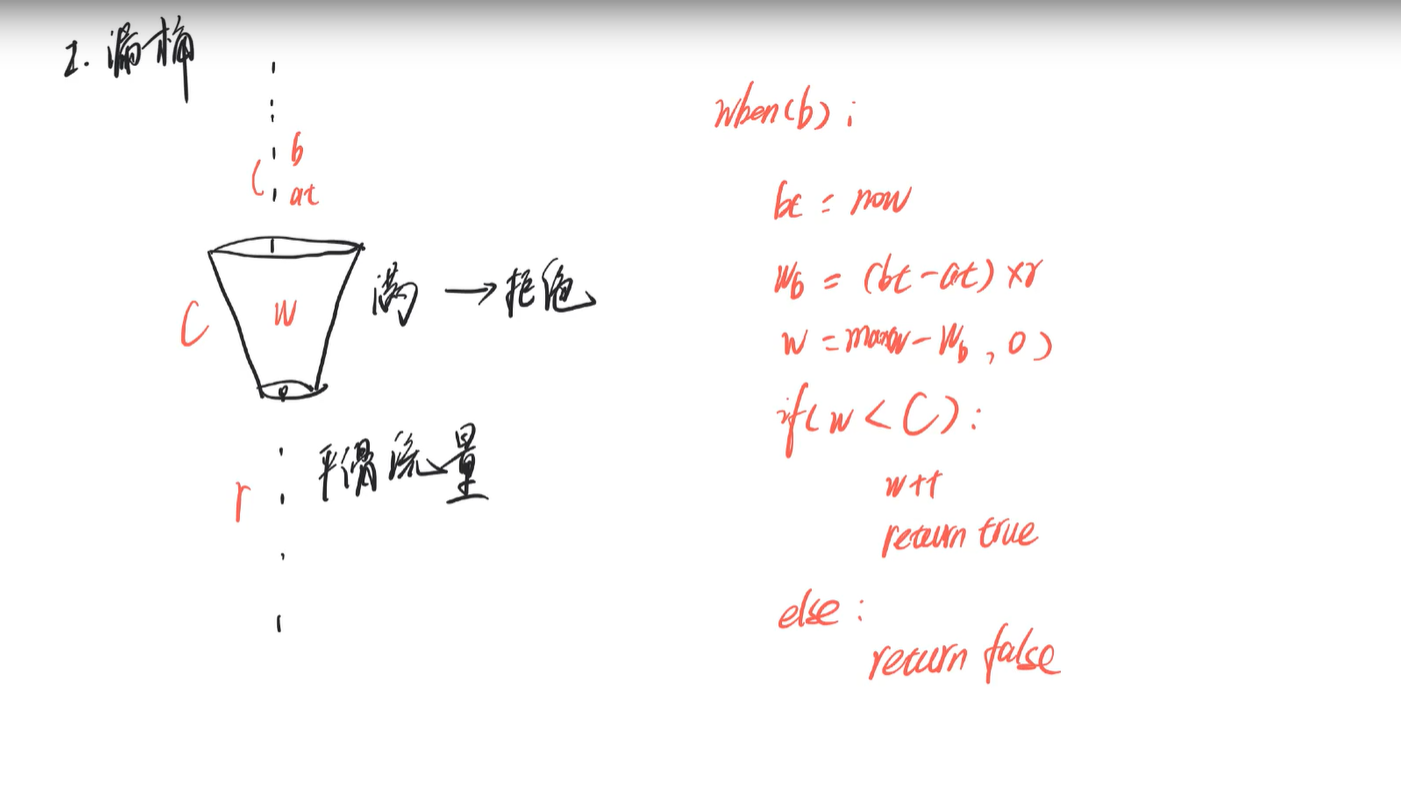 2. 漏桶
b
at
C
W
满 → 拒绝
r
平滑流量
when(b):
bt = now
Wb = (bt - at) × r
w = max(w - Wb, 0)
if( w < C ):
w++
return true
else:
return false